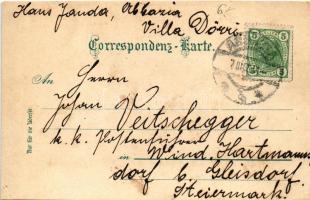 Hans Janda, Abbazia
Villa Dörri
Correspondenz-Karte.
An
Herrn
Johan Veitschegger
k. k. Postführer
in Wind. Hartmanns
dorf b. Gleisdorf
Steiermark.
Nur für die Adresse
5 5